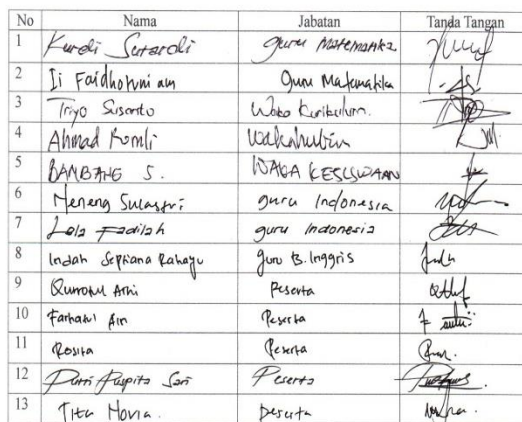 No Nama Jabatan Tanda Tangan
1 Kurdi Sutardi guru Matematika
2 Ii Faidhotuni am Guru Matematika
3 Triyo Susanto Waka Kurikulum.
4 Ahmad Romli Wakahubin
5 BAMBANG S. WAKA KESISWAAN
6 Neneng Sulastri guru Indonesia
7 Lela Fadilah guru Indonesia
8 Indah Septiana Rahayu Guru B. Inggris
9 Qurrotul Aini Peserta
10 Farhatul Ain Peserta
11 Rosita Peserta
12 Putri Puspita Sari Peserta
13 Tita Novia. Peserta